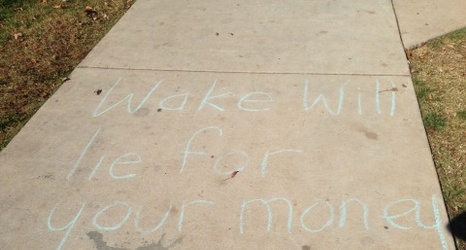 Wake Will
lie for
your money